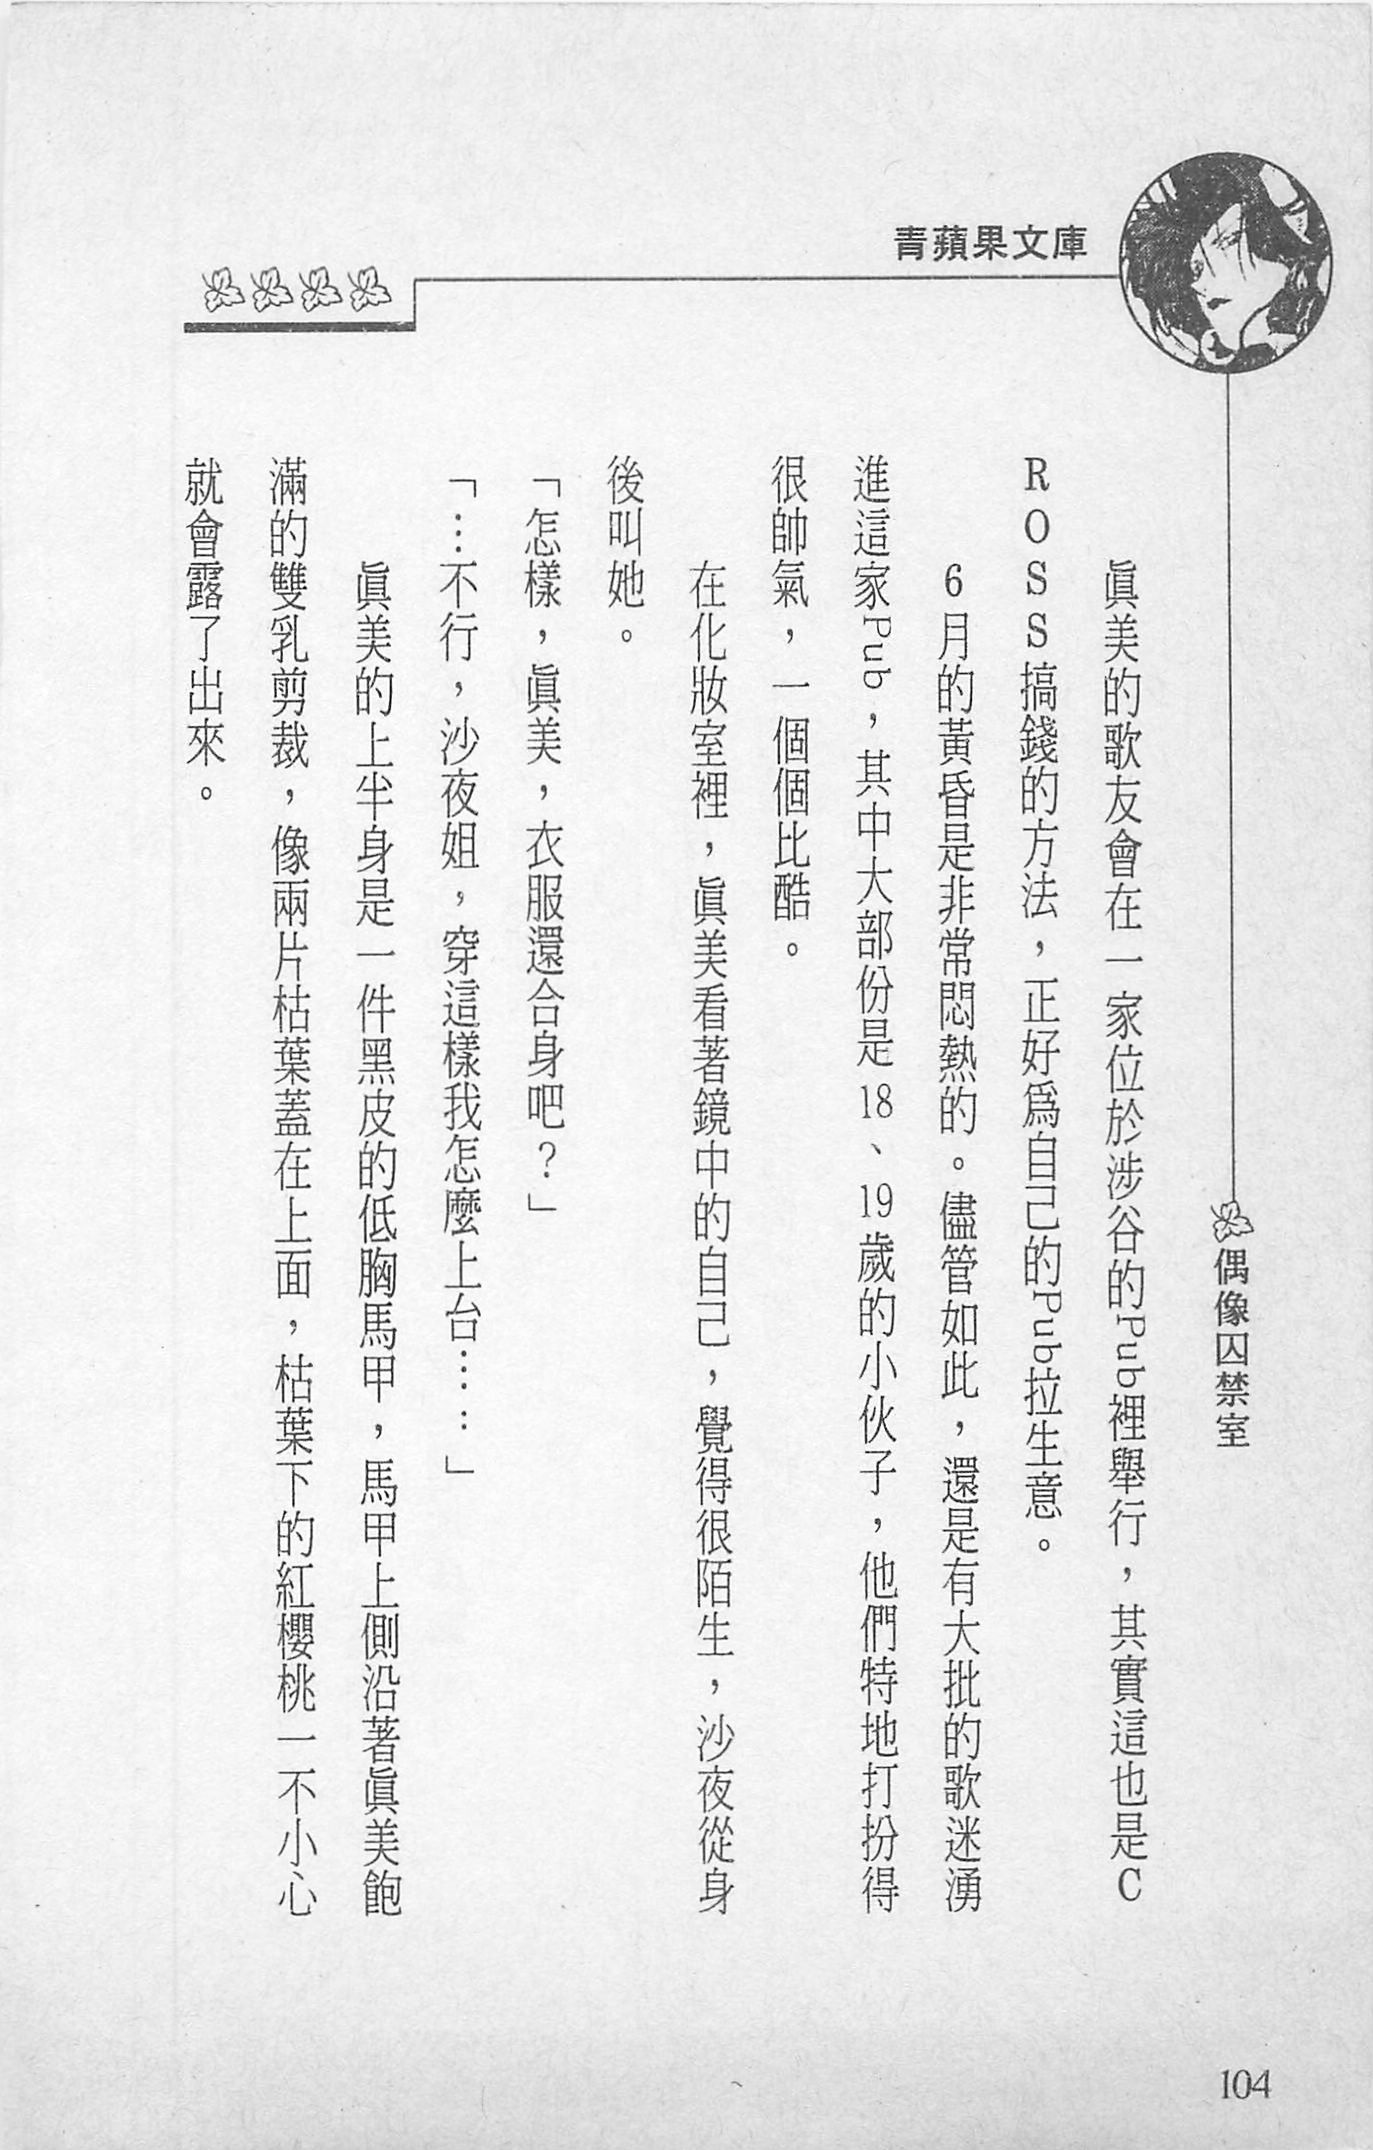 青蘋果文庫
偶像囚禁室
眞美的歌友會在一家位於涉谷的Pub裡舉行，其實這也是C
ROSS搞錢的方法，正好爲自己的Pub拉生意。
6月的黃昏是非常悶熱的。儘管如此，還是有大批的歌迷湧
進這家Pub，其中大部份是18、19歲的小伙子，他們特地打扮得
很帥氣，一個個比酷。
在化妝室裡，眞美看著鏡中的自己，覺得很陌生，沙夜從身
後叫她。
「怎樣，眞美，衣服還合身吧？」
「…不行，沙夜姐，穿這樣我怎麼上台……」
眞美的上半身是一件黑皮的低胸馬甲，馬甲上側沿著眞美飽
滿的雙乳剪裁，像兩片枯葉蓋在上面，枯葉下的紅櫻桃一不小心
就會露了出來。
104